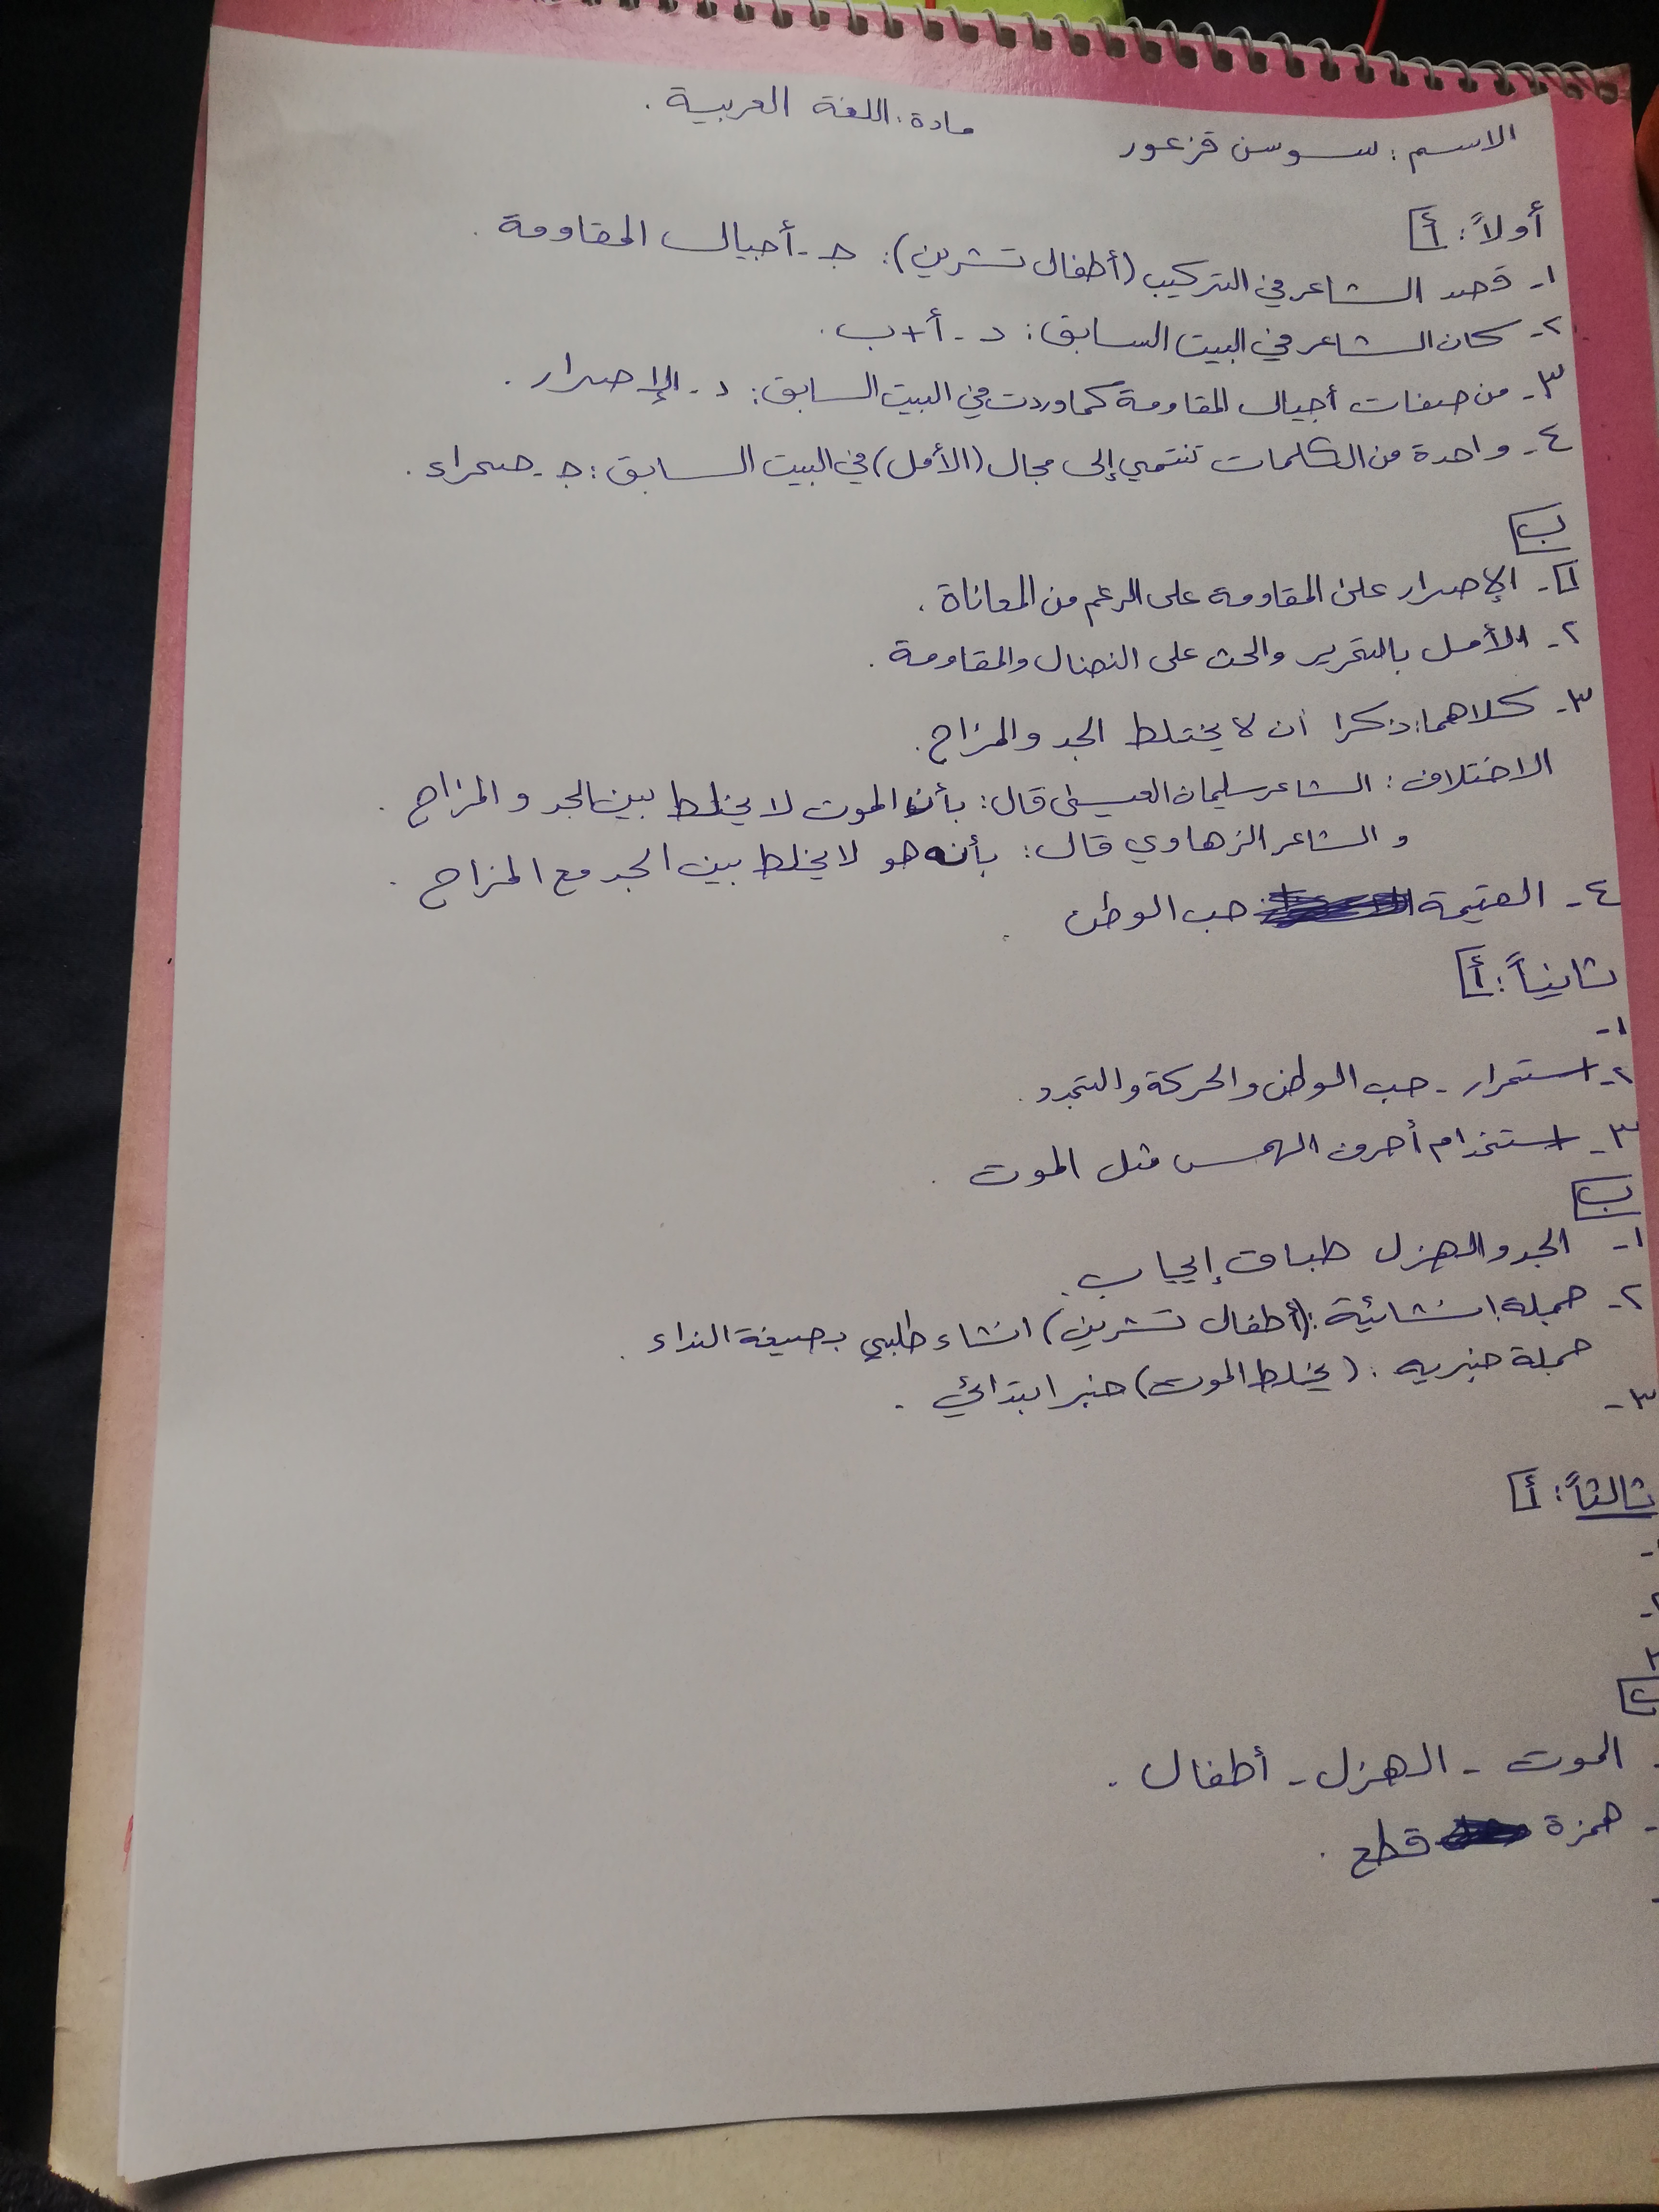 الاسم: سوسن قزعور مادة: اللغة العربية.
أولاً: أ
١- قصد الشاعر في التركيب (أطفال تشرين): جـ - أجيال المقاومة.
٢- كان الشاعر في البيت السابق: د - أ + ب.
٣- من صفات أجيال المقاومة كما وردت في البيت السابق: د - الإصرار.
٤- واحدة من الكلمات تنتمي إلى مجال (الأمل) في البيت السابق: جـ - صحراء.
ب
١- الإصرار على المقاومة على الرغم من المعاناة.
٢- الأمل بالتحرير والحث على النضال والمقاومة.
٣- كلاهما: ذكرا أن لا يختلط الجد والمزاح.
الاختلاف: الشاعر سليمان العيسى قال: بأن الموت لا يخلط بين الجد و المزاح.
و الشاعر الزهاوي قال: بأنه هو لا يخلط بين الجد مع المزاح.
٤- القيمة حب الوطن.
ثانياً: أ
١-
٢- استمرار - حب الوطن والحركة والتجدد.
٣- استخدام أحرف الهمس مثل الموت.
ب
١- الجد والهزل طباق إيجاب.
٢- جملة انشائية: (أطفال تشرين) انشاء طلبي بصيغة النداء.
جملة خبريه: (يخلط الموت) خبر ابتدائي.
٣-
ثالثاً: أ
-
٢-
٣
ب
- الموت - الهزل - أطفال.
- همزة قطع.
-